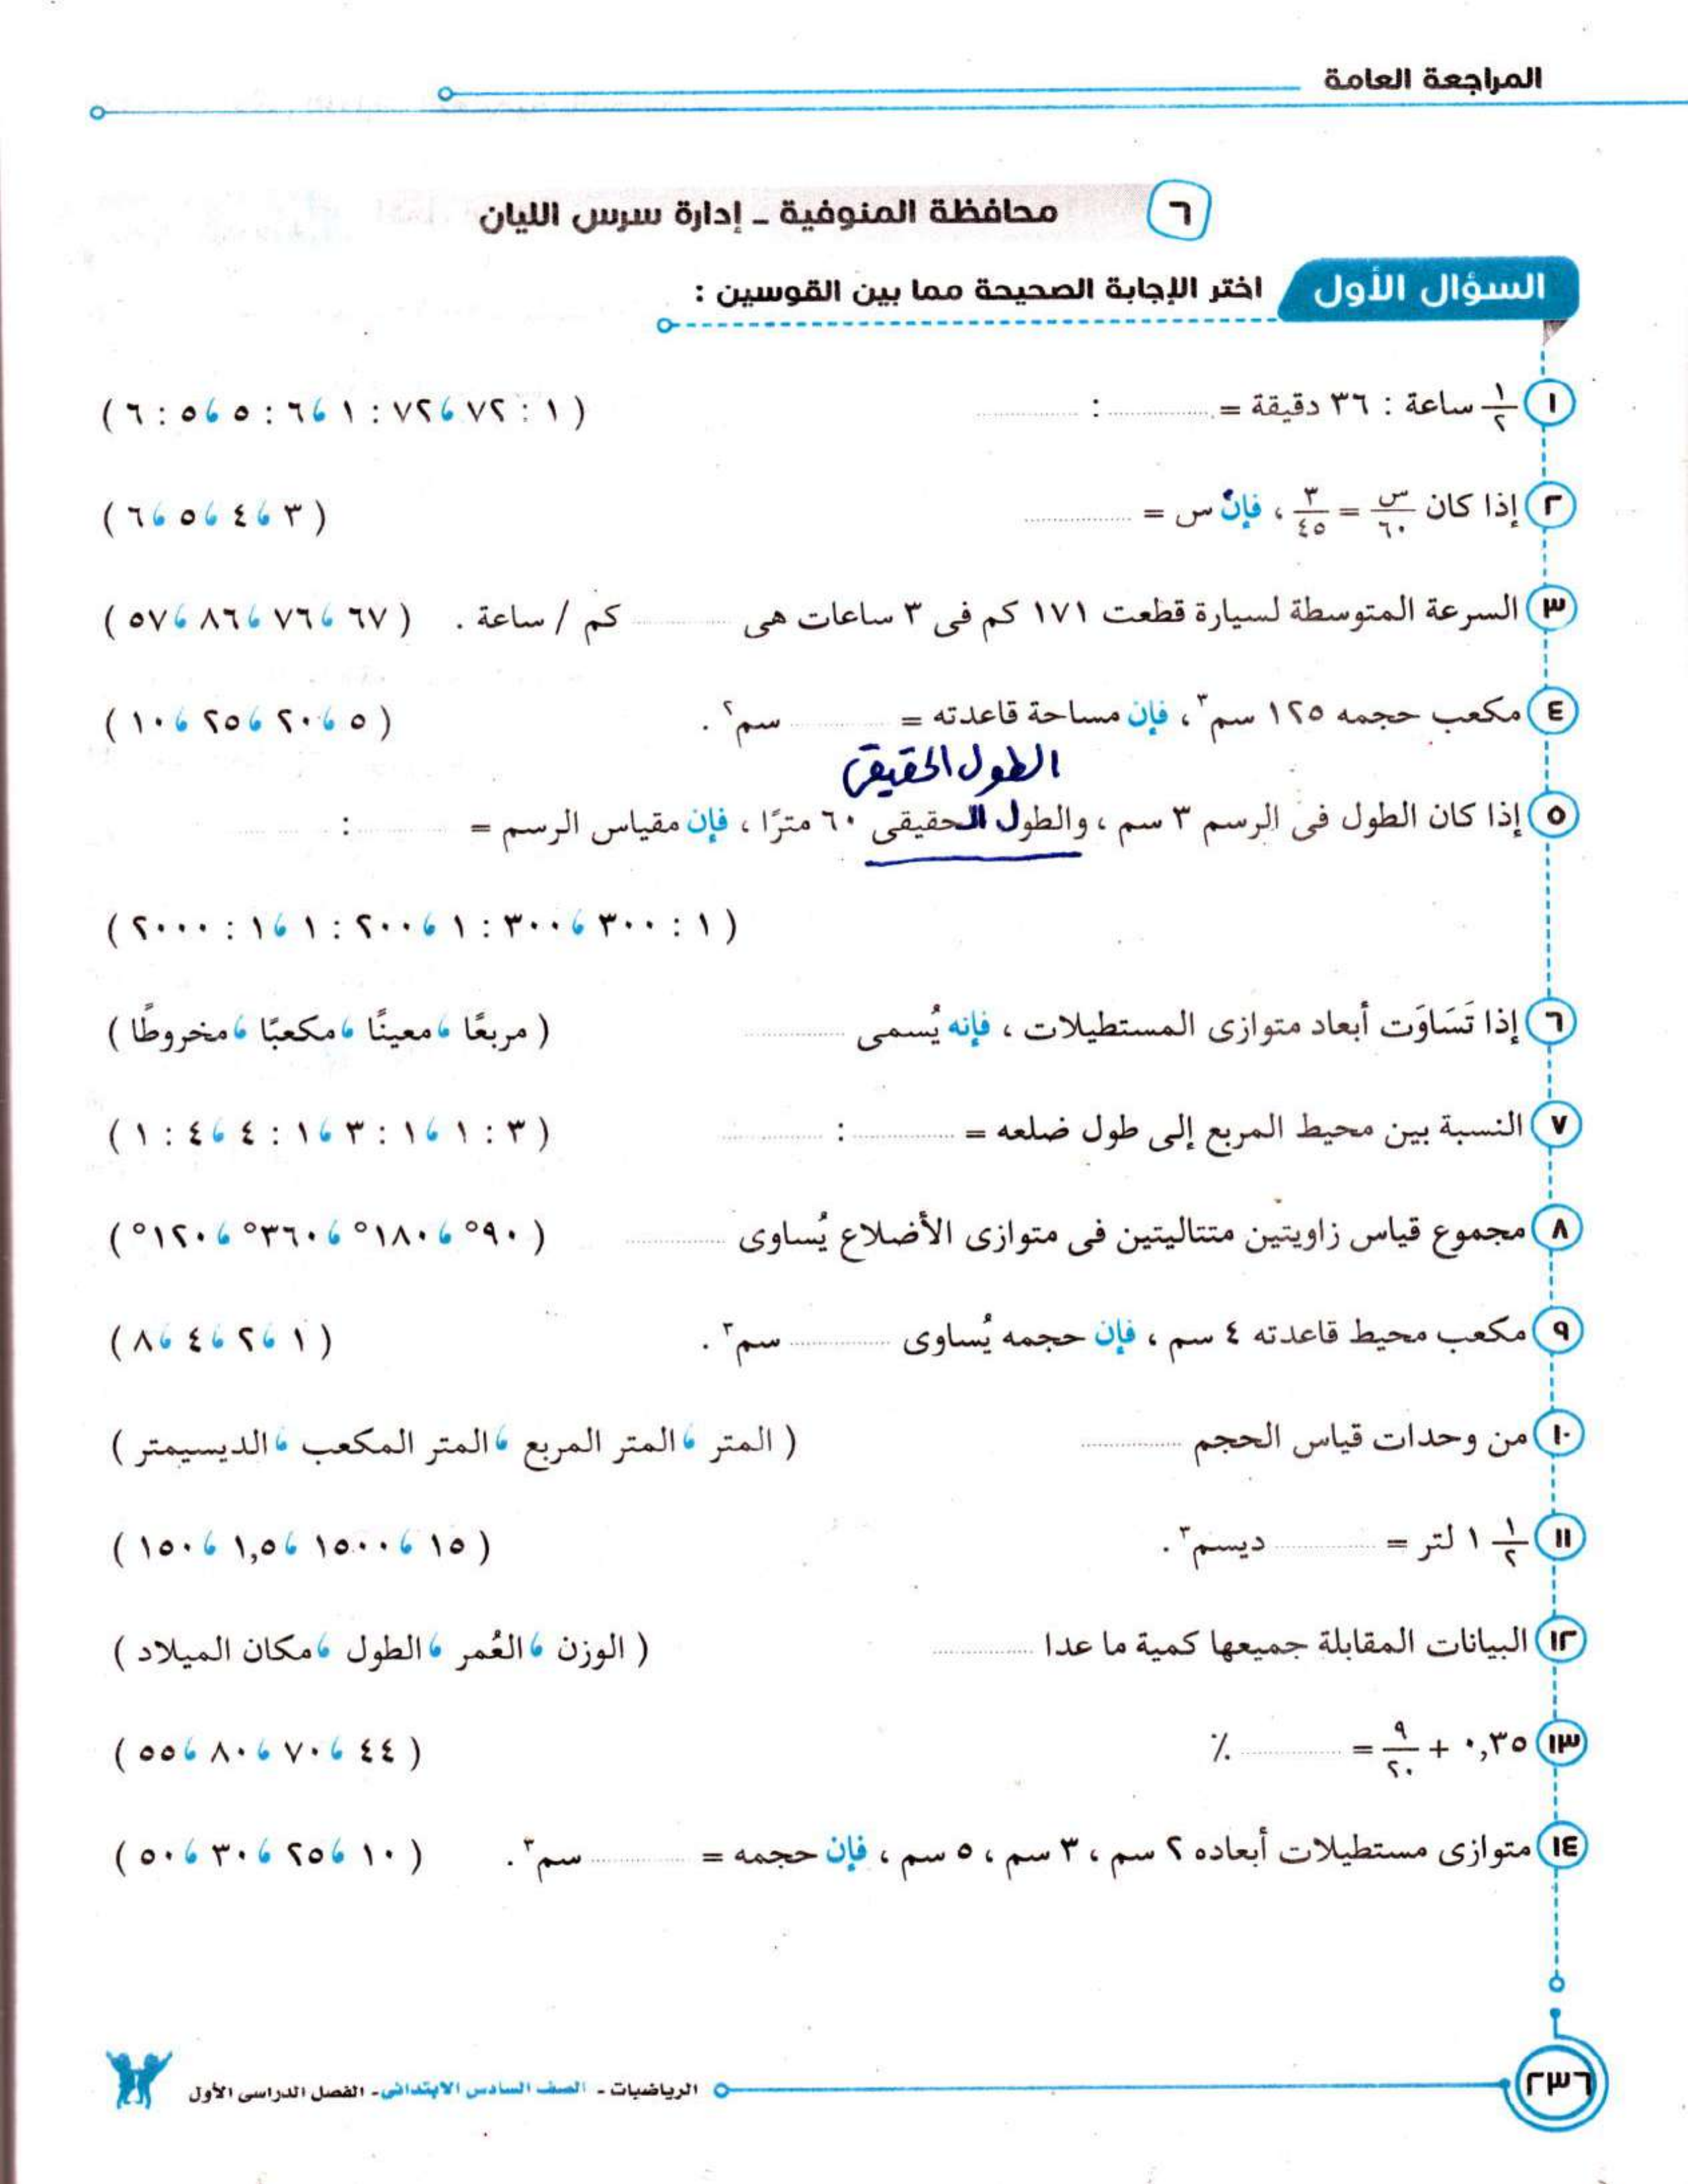 المراجعة العامة
٦ محافظة المنوفية - إدارة سرس الليان
السؤال الأول اختر الإجابة الصحيحة مما بين القوسين :
١ ١/٢ ساعة : ٣٦ دقيقة = ........ : ........ ( ١ : ٧٢ ، ٧٢ : ١ ، ٦ : ٥ ، ٥ : ٦ )
٢ إذا كان س/٦٠ = ٣/٤٥ ، فإن س = ........ ( ٣ ، ٤ ، ٥ ، ٦ )
٣ السرعة المتوسطة لسيارة قطعت ١٧١ كم فى ٣ ساعات هى ........ كم / ساعة . ( ٦٧ ، ٧٦ ، ٨٦ ، ٥٧ )
٤ مكعب حجمه ١٢٥ سم³ ، فإن مساحة قاعدته = ........ سم² . ( ٥ ، ٢٠ ، ٢٥ ، ١٠ )
الطول الحقيقى
٥ إذا كان الطول فى الرسم ٣ سم ، والطول الحقيقى ٦٠ مترًا ، فإن مقياس الرسم = ........ : ........
( ١ : ٣٠٠ ، ٣٠٠ : ١ ، ٢٠٠ : ١ ، ١ : ٢٠٠٠ )
٦ إذا تَسَاوَت أبعاد متوازى المستطيلات ، فإنه يُسمى ........ ( مربعًا ، معينًا ، مكعبًا ، مخروطًا )
٧ النسبة بين محيط المربع إلى طول ضلعه = ........ : ........ ( ٣ : ١ ، ١ : ٣ ، ١ : ٤ ، ٤ : ١ )
٨ مجموع قياس زاويتين متتاليتين فى متوازى الأضلاع يُساوى ........ ( ٩٠° ، ١٨٠° ، ٣٦٠° ، ١٢٠° )
٩ مكعب محيط قاعدته ٤ سم ، فإن حجمه يُساوى ........ سم³ . ( ١ ، ٢ ، ٤ ، ٨ )
١٠ من وحدات قياس الحجم ........ ( المتر ، المتر المربع ، المتر المكعب ، الديسيمتر )
١١ ١/٢ ١ لتر = ........ ديسم³ . ( ١٥ ، ١٥٠٠ ، ١,٥ ، ١٥٠ )
١٢ البيانات المقابلة جميعها كمية ما عدا ........ ( الوزن ، العُمر ، الطول ، مكان الميلاد )
١٣ ٠,٣٥ + ٩/٢٠ = ........ ٪ ( ٤٤ ، ٧٠ ، ٨٠ ، ٥٥ )
١٤ متوازى مستطيلات أبعاده ٢ سم ، ٣ سم ، ٥ سم ، فإن حجمه = ........ سم³ . ( ١٠ ، ٢٥ ، ٣٠ ، ٥٠ )
٢٣٦ الرياضيات - الصف السادس الابتدائى - الفصل الدراسى الأول